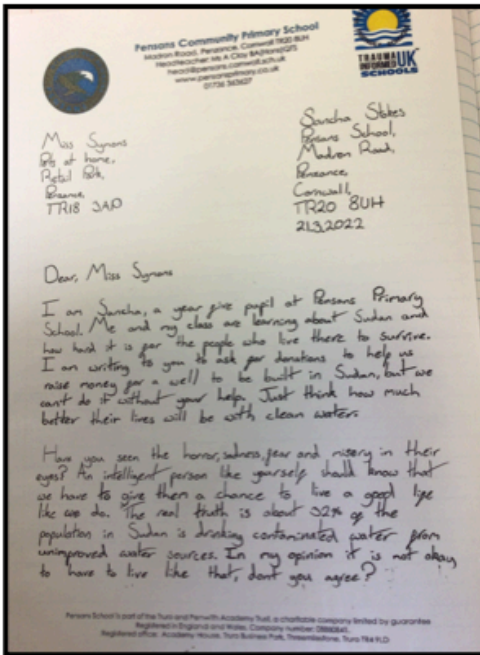 Pensans Community Primary School
Madron Road, Penzance, Cornwall TR20 8UH
Headteacher: Ms A Clay BA(Hons)QTS
head@pensans.cornwall.sch.uk
www.pensansprimary.co.uk
01736 363627
TRAUMA
INFORMED UK
SCHOOLS
Miss Symons
Pets at home,
Retail Park,
Penzance,
TR18 3AP
Sancha Stokes
Pensans School,
Madron Road,
Penzance,
Cornwall,
TR20 8UH
21.3.2022
Dear, Miss Symons
I am Sancha, a year five pupil at Pensans Primary
School. Me and my class are learning about Sudan and
how hard it is for the people who live there to survive.
I am writing to you to ask for donations to help us
raise money for a well to be built in Sudan, but we
can't do it without your help. Just think how much
better their lives will be with clean water.
Have you seen the horror, sadness, fear and misery in their
eyes? An intelligent person like yourself should know that
we have to give them a chance to live a good life
like we do. The real truth is about 32% of the
population in Sudan is drinking contaminated water from
unimproved water sources. In my opinion it is not okay
to have to live like that, dont you agree?
Pensans School is part of the Truro and Penwith Academy Trust, a charitable company limited by guarantee
Registered in England and Wales. Company number:
Registered office: Academy House, Truro Business Park, Threemilestone, Truro TR4 9LD